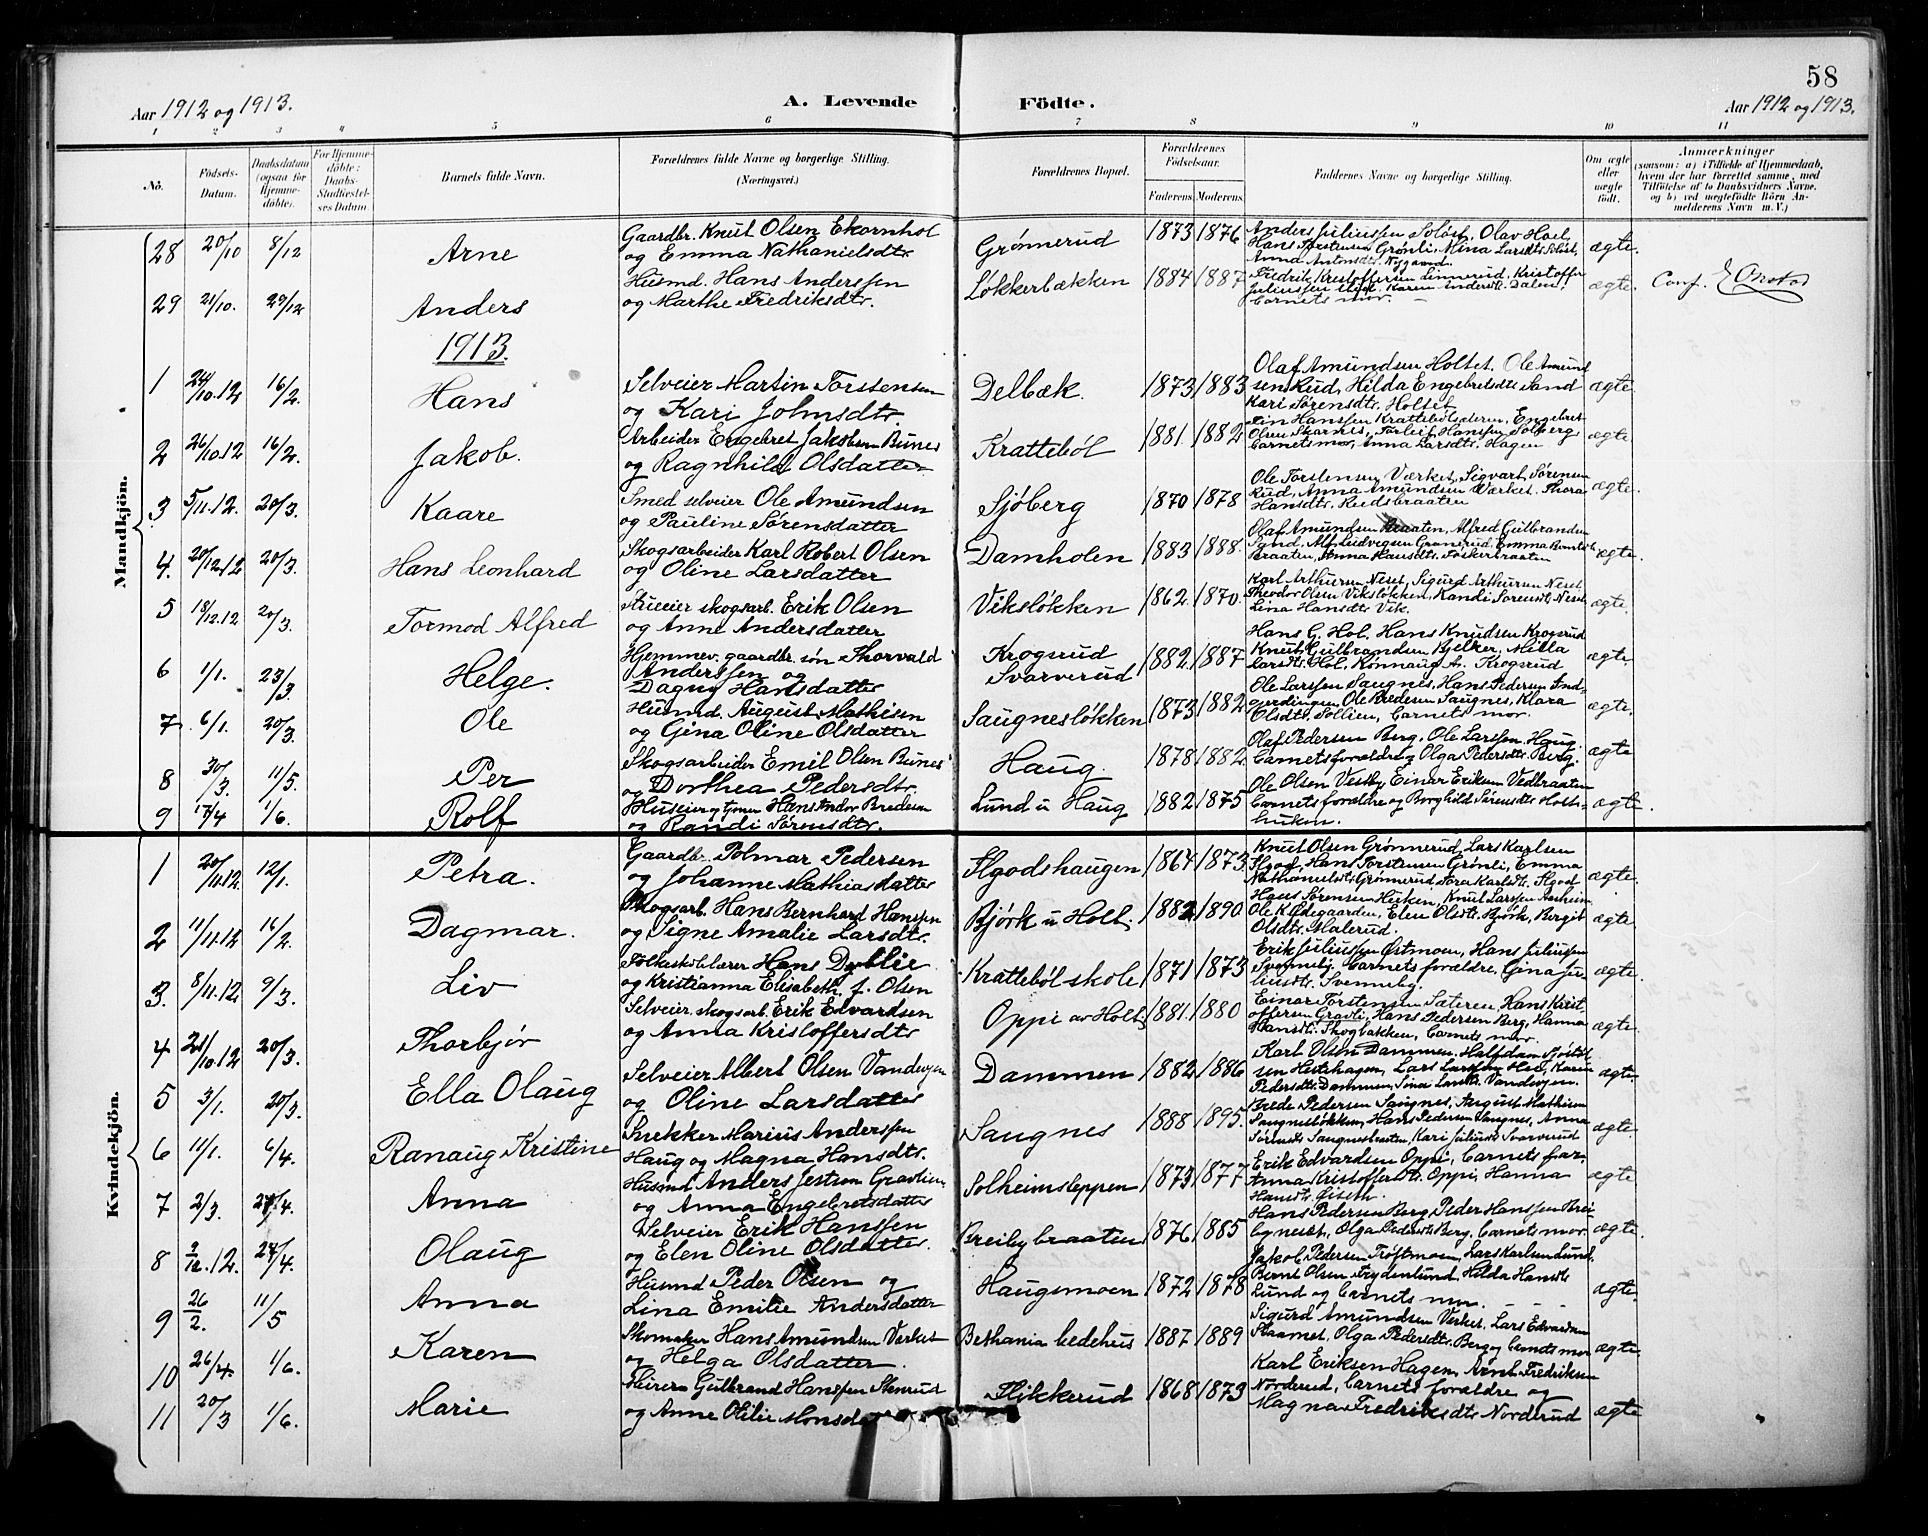 58
Aar 1912 og 1913. A. Levende Födte. Aar 1912 og 1913.
1 2 3 4 5 6 7 8 9 10 11
No. Födsels-Datum. Daabsdatum (ogsaa for Hjemme-döbte). For Hjemme-döbte: Daabs-Stadfæstel-ses Datum. Barnets fulde Navn. Forældrenes fulde Navne og borgerlige Stilling. (Næringsvei.) Forældrenes Bopæl. Forældrenes Födselsaar. Faderens Moderens Faddernes Navne og borgerlige Stilling. Om ægte eller uægte födt. Anmærkninger (saasom: a) i Tilfælde af Hjemmedaab, hvem der har forrettet samme, med Tilföielse af to Daabsvidners Navne, og b) ved uægtefödte Börn An-melderens Navn m. V.)
Mandkjön.
28 20/10 8/12 Arne Gaardbr. Knut Olsen Ekornhol og Emma Nathanielsdtr. Grønnerud 1873 1876 Anders Juliussen Soløst, Olav Hoel, Hans Torstensen Grønli, Mina Larsdtr. Anna Antonsdtr. Nygaard. ægte.
29 21/10. 29/12 Anders Husmd. Hans Anderssen og Marthe Fredriksdtr. Løkkerbækken 1884 1887 Fredrik Kristoffersen Linnerud, Kristoffer Juliussen Karen Andersdtr. Dalen, barnets mor. ægte. Conf.
1913.
1 24/10.12 16/2. Hans Selveier Martin Torstensen og Kari Johnsdtr. Delbæk. 1873 1883 Olaf Amundsen Holtet, Ole Amundsen Rud, Hilda Engebretsdtr. Sand Kari Sørensdtr. Holtet ægte.
2 26/10.12 16/2. Jakob. Arbeider Engebret Jakobsen Bunes og Ragnhild Olsdatter Krattebøl 1881 1882 Hanssen Krattebølsæteren, Engebret Olsen Skarnes, Torleif Hanssen Solberg barnets mor, Anna Larsdtr. Hagen ægte.
3 5/11.12. 20/3. Kaare Smed selveier Ole Amundsen og Pauline Sørensdatter Sjøberg 1870 1878 Ole Torstensen Værket, Sigvart Sørensen Rud, Anna Amundsen Værket, Thora Hansdtr. ægte.
4. 20/12.12 20/3. Hans Leonhard Skogsarbeider Karl Robert Olsen og Oline Larsdatter Damholen 1883 1888. Olaf Amundsen Braaten, Alfred Gulbrandsen Sand, Alf Ludvigsen Emma Braaten, Anna Hansdtr. ægte.
5 18/12.12 20/3. Tormod Alfred skogsarb. Erik Olsen og Anne Andersdatter Viksløkken 1862 1870. Karl Arthursen Neset, Sigurd Arthursen Neset Theodor Olsen Viksløkken, Randi Sørensdtr. Neset, Lina Hansdtr. Vik. ægte.
6 1/1. 23/3. Helge. Hjemmev. gaardbr. søn Thorvald Anderssen og Dagny Hansdatter Krogsrud Svarverud 1882 1887 Hans G. Hol, Hans Knudsen Krogsrud Knut Gulbrandsen Bjelker, Milla Larsdtr. Hol, Rønnaug A. Krogsrud ægte.
7 6/1. 20/3. Ole Husmd. August Mathisen og Gina Oline Olsdatter Saugnesløkken 1873 1882 Ole Larssen Saugnes, Hans Pedersen And-gjerdingen, Ole Bredesen Saugnes, Klara Olsdtr. Sollien, barnets mor. ægte.
8 30/3. 11/5. Per Skogsarbeider Emil Olsen Bunes og Dorthea Pedersdtr. Haug. 1878 1882 Olaf Pedersen Berg, Ole Larssen Haug. barnets forældre, Olga Pedersdtr. Berg. ægte
9 17/4 1/6. Rolf Hans Andor Bredesen og Randi Sørensdtr. Lund u Haug 1882 1875 Ole Olsen Vestby, Einar Eriksen Vedbraaten barnets forældre og Borghild Sørensdtr. Holthuken. ægte.
Kvindekjön.
1 20/11.12. 12/1. Petra. Gaardbr. Polmar Pedersen og Johanne Mathiasdatter Flgodshaugen 1864 1873. Knut Olsen Grønnerud, Lars Karlsen Hans Torstensen Grønli, Emma Nathanielsdtr. Grønnerud, Tora Karlsdtr. ægte.
2 11/11.12 16/2. Dagmar. Skogsarb. Hans Bernhard Hanssen og Signe Amalie Larsdtr. Bjørk u Holt. 1882 1890 Hans Sørensen Knut Larssen Ole K. Ødegaarden, Elen Olsdtr. Bjørk, Birgit Olsdtr. Malerud. ægte
3. 8/11.12 9/3. Liv Folkeskolelærer Hans Døblie og Kristianna Elisabeth f. Olsen Krattebøl skole 1871 1873 Erik Juliussen Østmoen, Hans Juliussen Svenneby, barnets forældre, Gina Juliusdtr. Svenneby. ægte.
4 21/10.12 20/3. Thorbjør Selveier skogsarb. Erik Edvardsen og Anna Kristoffersdtr. Oppi av Holt 1881. 1880 Einar Torstensen Sæteren, Hans Kristoffersen Gravli, Hans Pedersen Berg, Hanna Hansdtr. Skogbakken, barnets mor. ægte.
5 3/1. 20/3. Ella Olaug Selveier Albert Olsen Vandvogen og Oline Larsdatter Dammen 1882 1886 Karl Olsen Dammen, Halfdan Lars Larssen Karen Pedersdtr. Dammen, Sina Larsdtr. Vandvogen. ægte.
6 11/1. 6/4. Ranaug Kristine Snekker Marius Anderssen Haug og Magna Hansdtr. Saugnes 1888 1895. Brede Pedersen Saugnes, August Mathisen Saugnesløkken, Hans Pedersen Saugnes, Anna Sørensdtr. Saugnesbraaten, Kari Juliusdtr. Svarverud ægte.
7 2/3. 27/4. Anna Husmd. Anders Jestsen Gravlien og Anna Engebretsdatter Solheimsleppen 1873 1877 Erik Edvardsen Oppi, barnets far. Anna Kristoffersdtr. Oppi, Hanna Hansdtr. Øiseth. ægte
8 9/12.12. 27/4. Olaug Selveier Erik Hanssen og Elen Oline Olsdatter. Breibybraaten 1876 1885 Hans Pedersen Berg, Peder Hanssen Olga Pedersdtr. Berg, barnets mor. ægte.
9 26/2. 11/5 Anna Husmd Peder Olsen og Lina Emilie Andersdatter Haugsmoen 1872 1878 Jakob Pedersen Trøftmoen, Lars Karlsen Lund. Bernt Olsen Frydenlund, Hilda Hansdtr. Lund og barnets mor. ægte.
10 26/4. 1/6. Karen Skomaker Hans Amundsen Værket og Helga Olsdatter. Bethania bedehus 1887 1889 Sigurd Amundsen Verket, Lars Edvardsen Olga Pedersdtr. Berg og barnets mor ægte.
11 20/3 1/6. Marie Gulbrand Hanssen Stenrud og Anne Otilie Monsda Flikkerud 1868 1873 Karl Eriksen Hagen, Arnt Fredriksen Norderud, barnets forældre og Magna Fredriksdtr. Norderud ægte